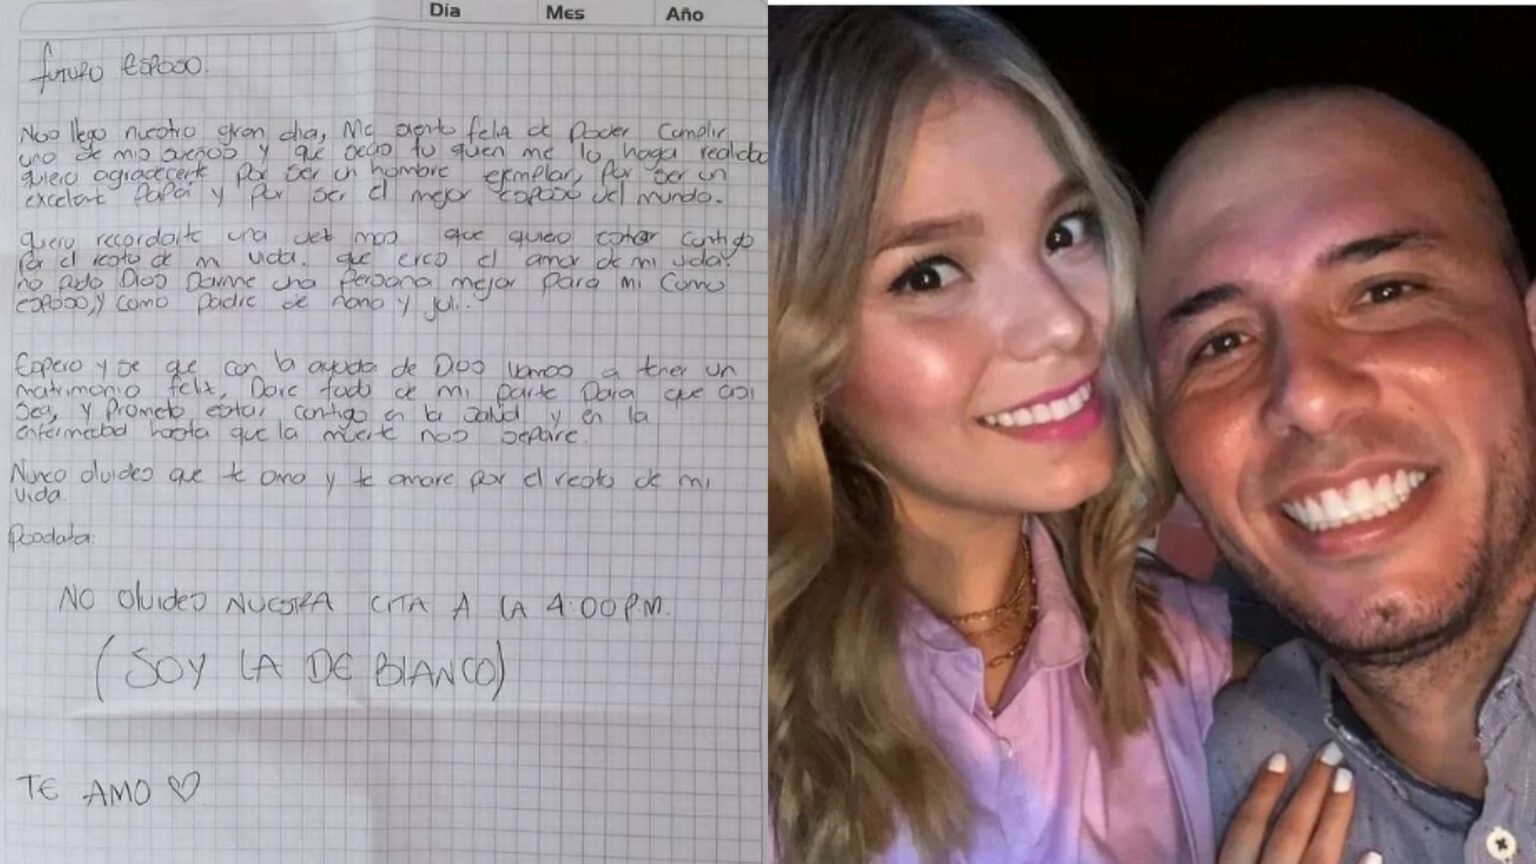 Día Mes Año
futuro esposo.
Nos llego nuestro gran dia, Me siento feliz de poder cumplir
uno de mis sueños y que seas tu quien me lo haga realidad
quiero agradecerte por ser un hombre ejemplar, por ser un
excelent Papá y por ser el mejor esposo del mundo.
quiero recordarte una vez mas que quiero estar contigo
por el resto de mi vida, que eres el amor de mi vida,
no pudo Dios Darme una persona mejor para mi Como
esposo, y como padre de nono y jui.
Espero y se que con la ayuda de Dios vamos a tener un
matrimonio feliz, Dare todo de mi parte para que asi
sea, y prometo estar contigo en la salud y en la
enfermedad hasta que la muerte nos separe.
Nunca olvides que te amo y te amare por el resto de mi
vida
Posdata:
NO Olvides NUESTRA CITA A LA 4:00PM.
(SOY LA DE BLANCO)
TE AMO ♡